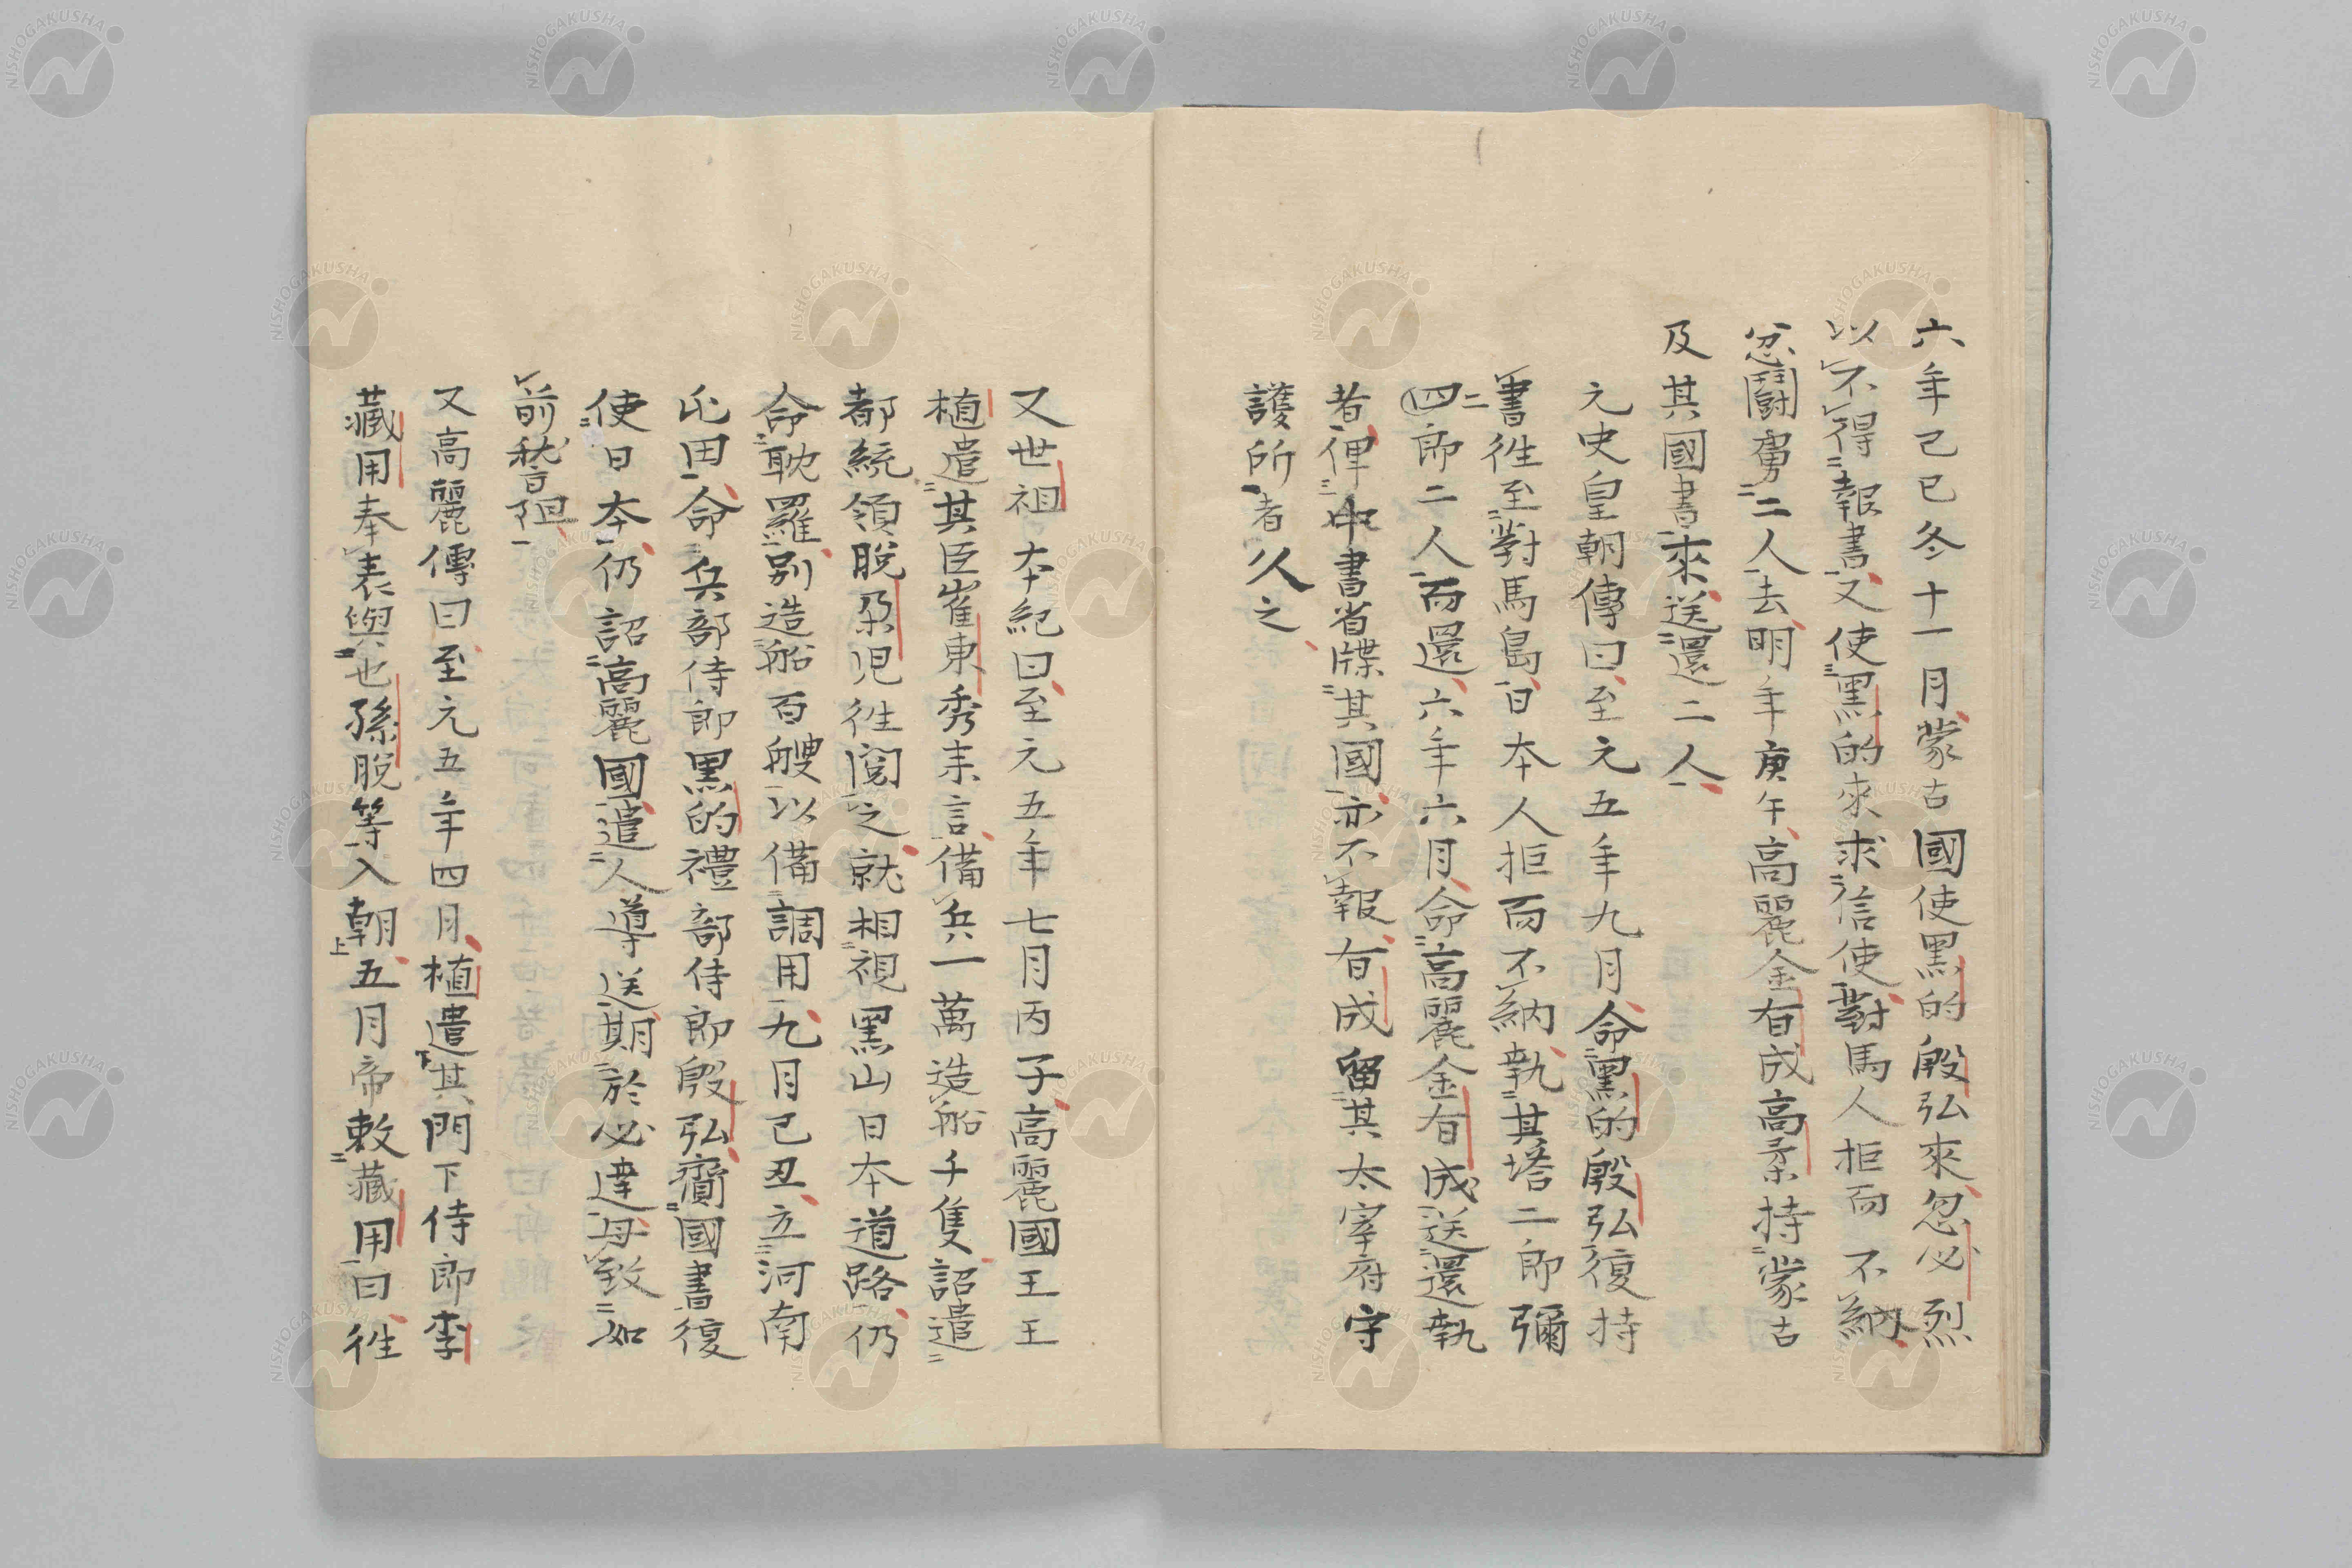 六年己巳冬十一月蒙古國使黑的殷弘來忽必烈
以不得報書又使黑的來求信使對馬人拒而不納
忿鬪虜二人去明年庚午高麗金有成高柔持蒙古
及其國書來送還二人
元史皇朝傳曰至元五年九月命黑的殷弘復持
書徃至對馬島日本人拒而不納執其塔二郎彌
四二郎二人而還六年六月命高麗金有成送還執
者俾中書省牒其國亦不報有成留其太宰府守
護所者久之
又世祖本紀曰至元五年七月丙子高麗國王王
植遣其臣崔東秀来言備兵一萬造船千隻詔遣
都統領脫朶児徃閲之就相視黑山日本道路仍
命耽羅別造船百艘以備調用九月己丑立河南
屯田命兵部侍郎黑的禮部侍郎殷弘齎國書復
使日本仍詔高麗國遣人導送期於必達毋致如
前稽阻
又高麗傳曰至元五年四月植遣其門下侍郎李
藏用奉表與也孫脫等入朝五月帝敕藏用曰徃
上
NISHOGAKUSHA